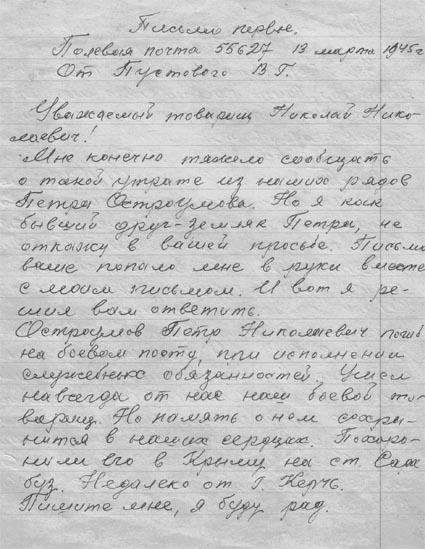 Письмо первое.
Полевая почта 55627 13 марта 1945 г
От Пустового В. Г.
Уважаемый товарищ Николай Нико-
лаевич!
Мне конечно тяжело сообщать
о такой утрате из наших рядов
Петра Остроумова. Но я как
бывший друг-земляк Петра, не
откажу в вашей просьбе. Письмо
ваше попало мне в руки вместе
с моим письмом. И вот я ре-
шил вам ответить.
Остроумов Петр Николаевич погиб
на боевом посту, при исполнении
служебных обязанностей. Ушел
навсегда от нас наш боевой то-
варищ. Но память о нем сохра-
нится в наших сердцах. Похоро-
нили его в Крыму на ст. Сала
буз. Недалеко от г. Керчь.
Пишите мне, я буду рад.